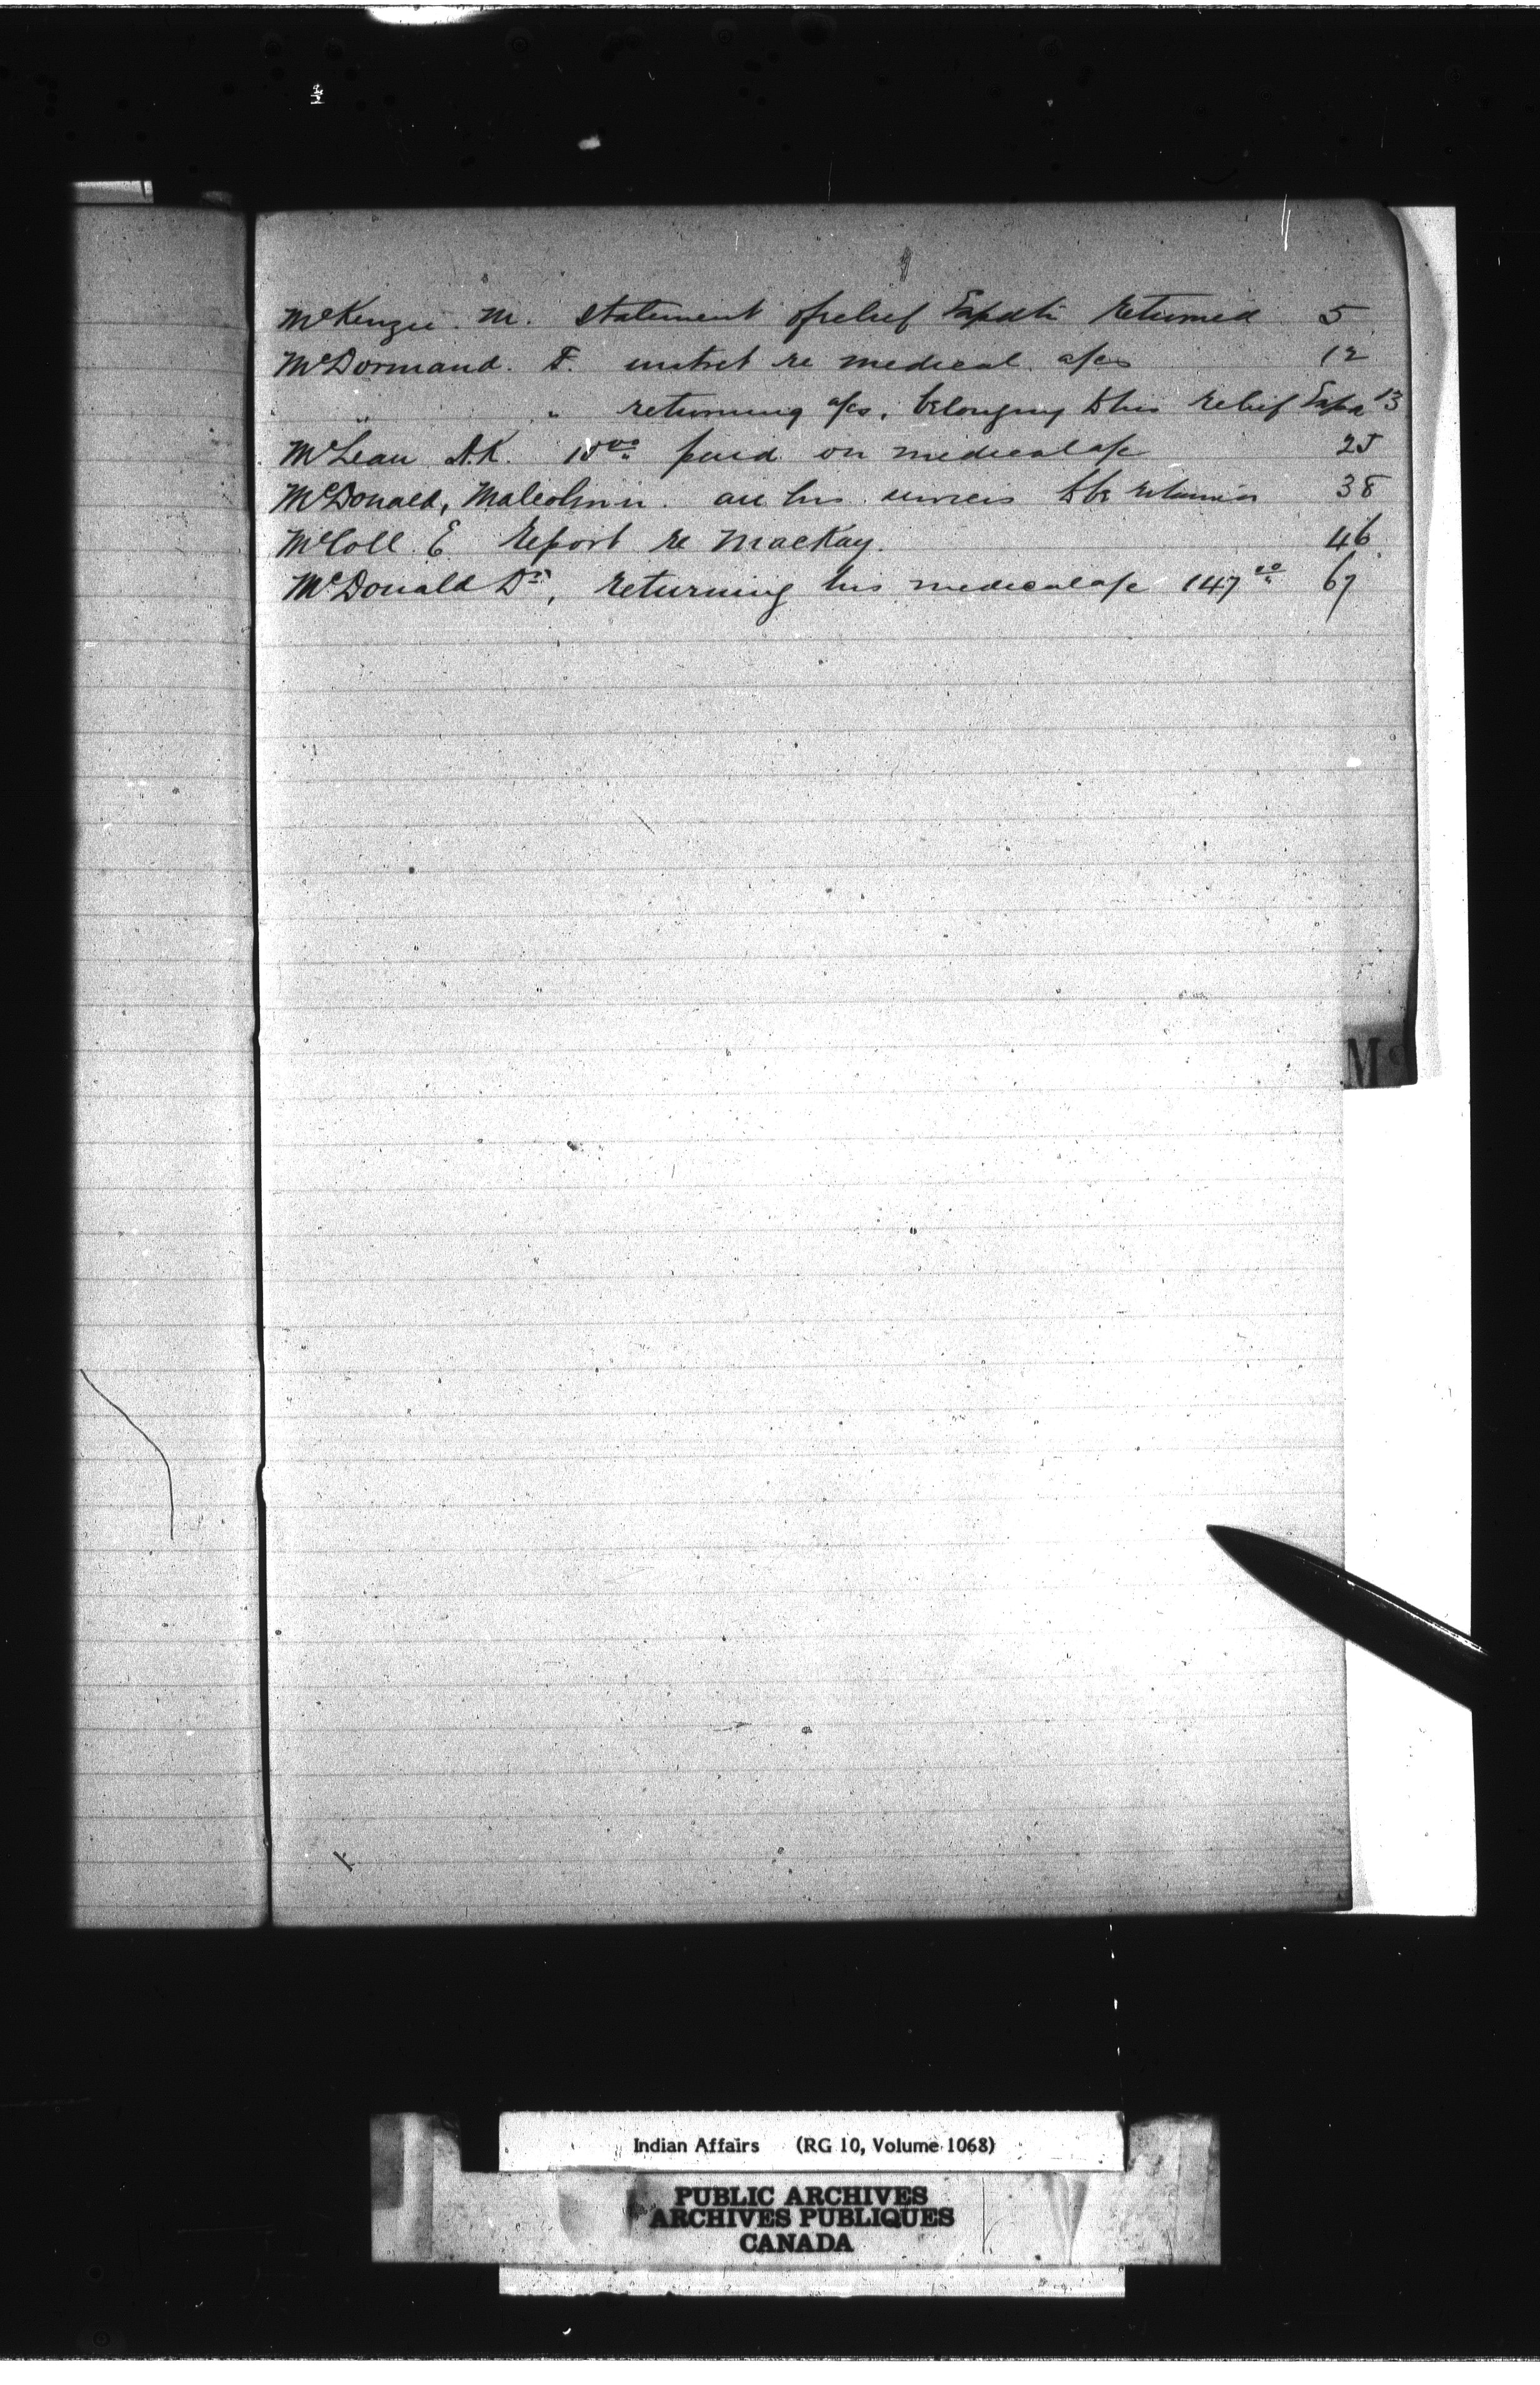 McKenzie. M. statement of relief Expdti returned 5
McDormand. F. instret re medical a/cs 12
" returning a/cs, belonging to his relief Expn 13
McLean A.K. paid on medical a/c 25
McDonald, Malcolm. are his to be 38
McColl. E report re MacKay. 46
McDonald Dr, returning his medical a/c 147 00 67
Mc
Indian Affairs (RG 10, Volume 1068)
PUBLIC ARCHIVES
ARCHIVES PUBLIQUES
CANADA